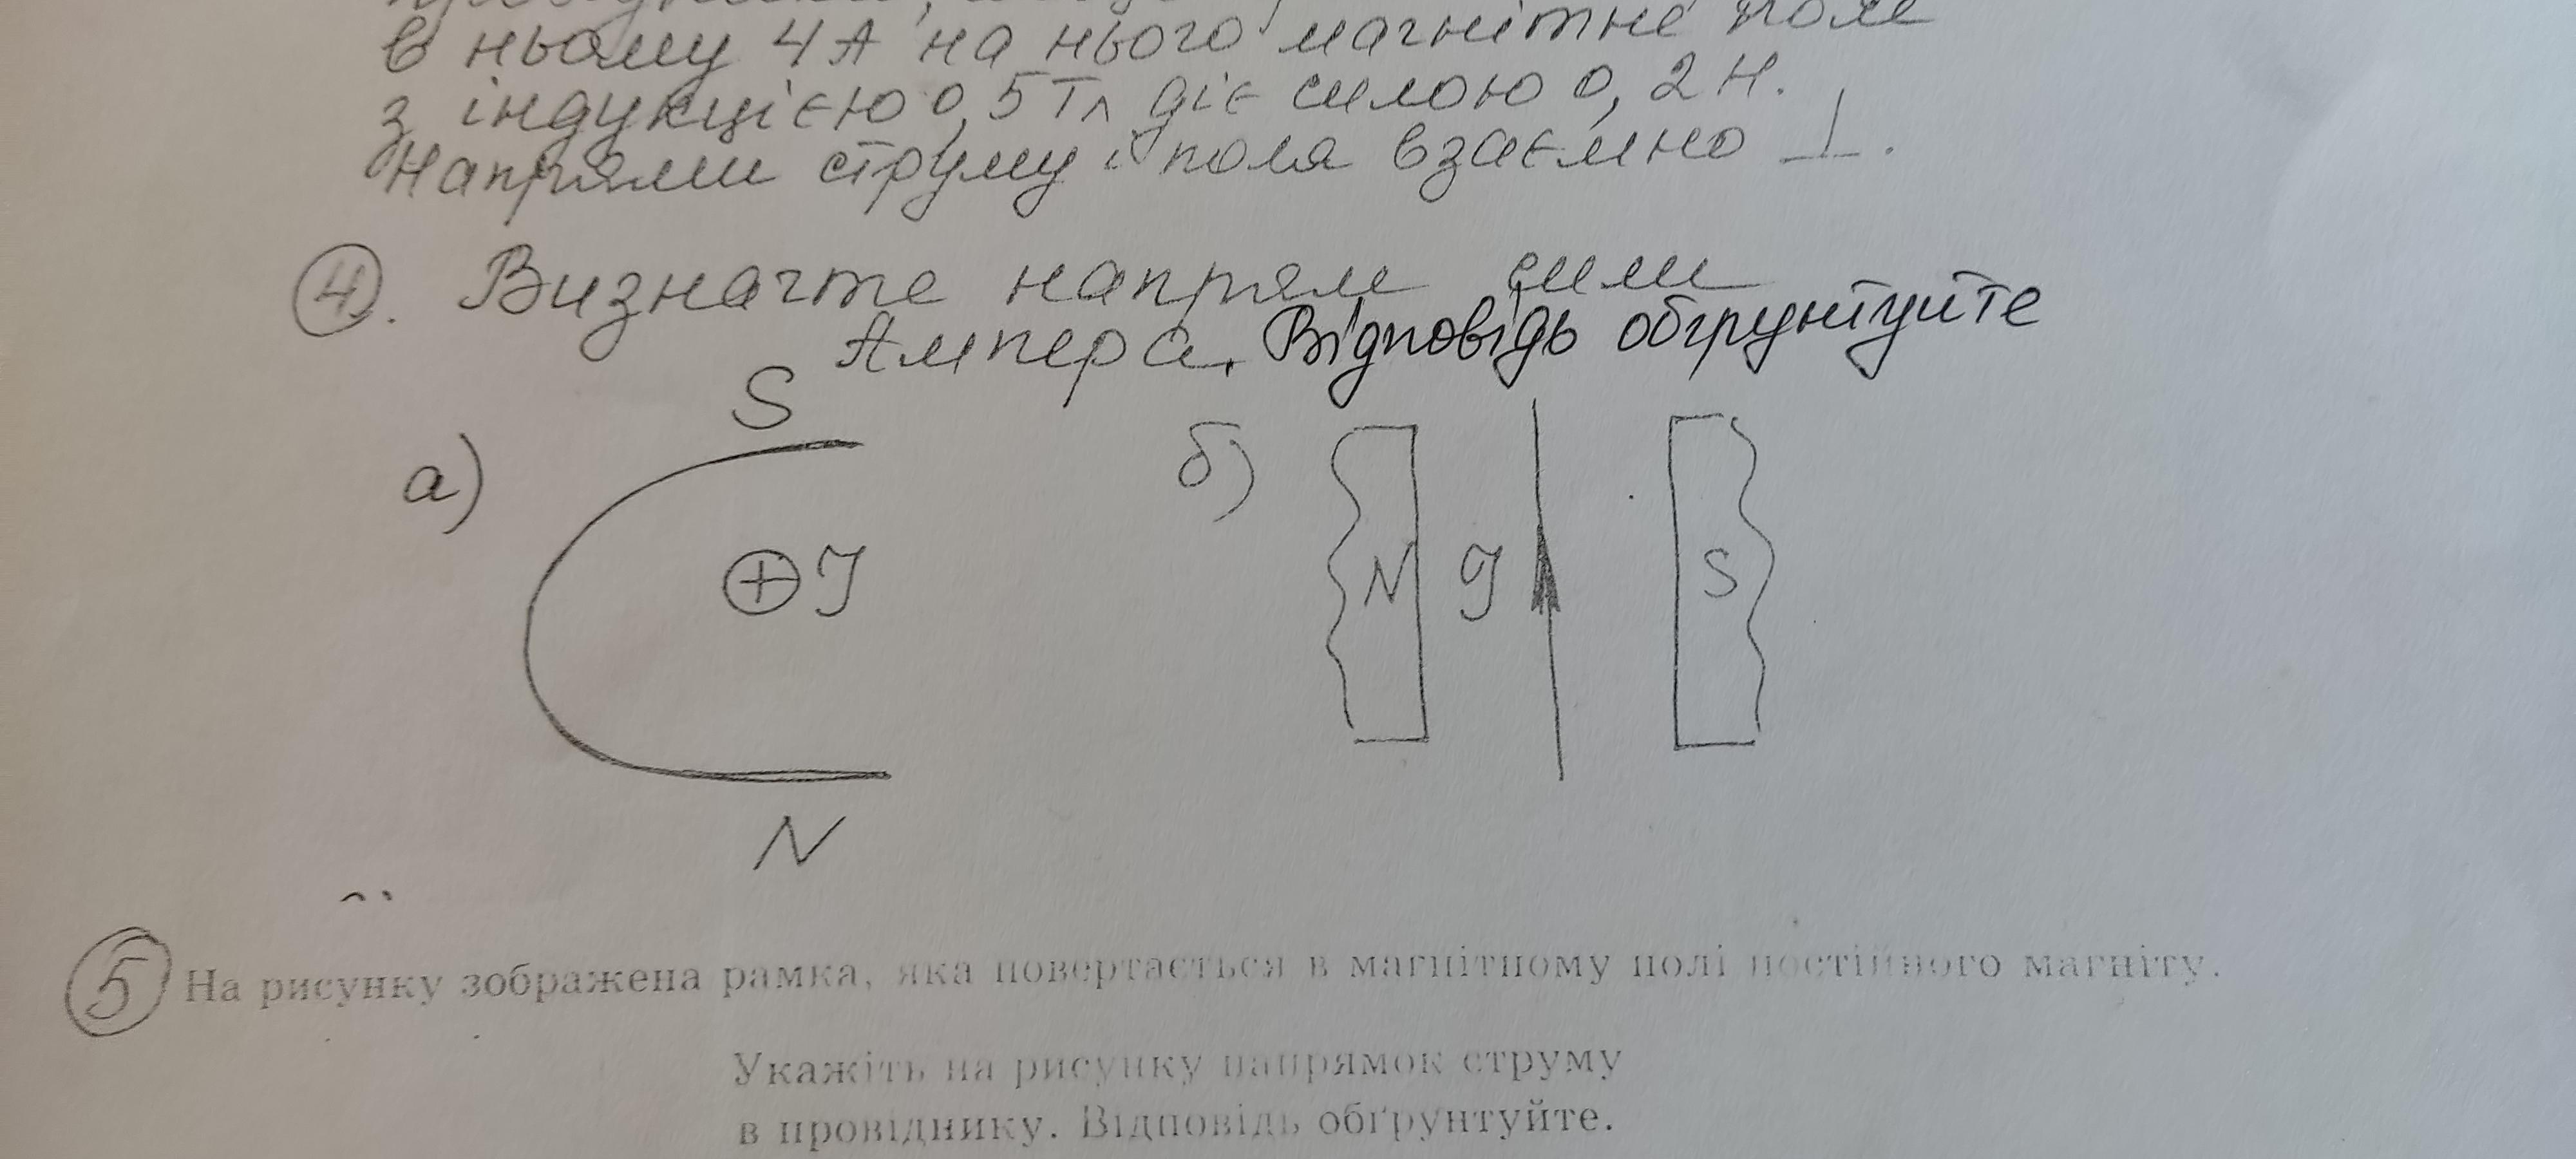 в ньому 4 А на нього магнітне поле
з індукцією 0,5 Тл діє силою 0,2 Н.
Напрями струму і поля взаємно ⊥.
4. Визначте напрям сили
Ампера. Відповідь обгрунтуйте
а) S
⊕ I
N
б) N I S
5 На рисунку зображена рамка, яка повертається в магнітному полі постійного магніту.
Укажіть на рисунку напрямок струму
в провіднику. Відповідь обґрунтуйте.